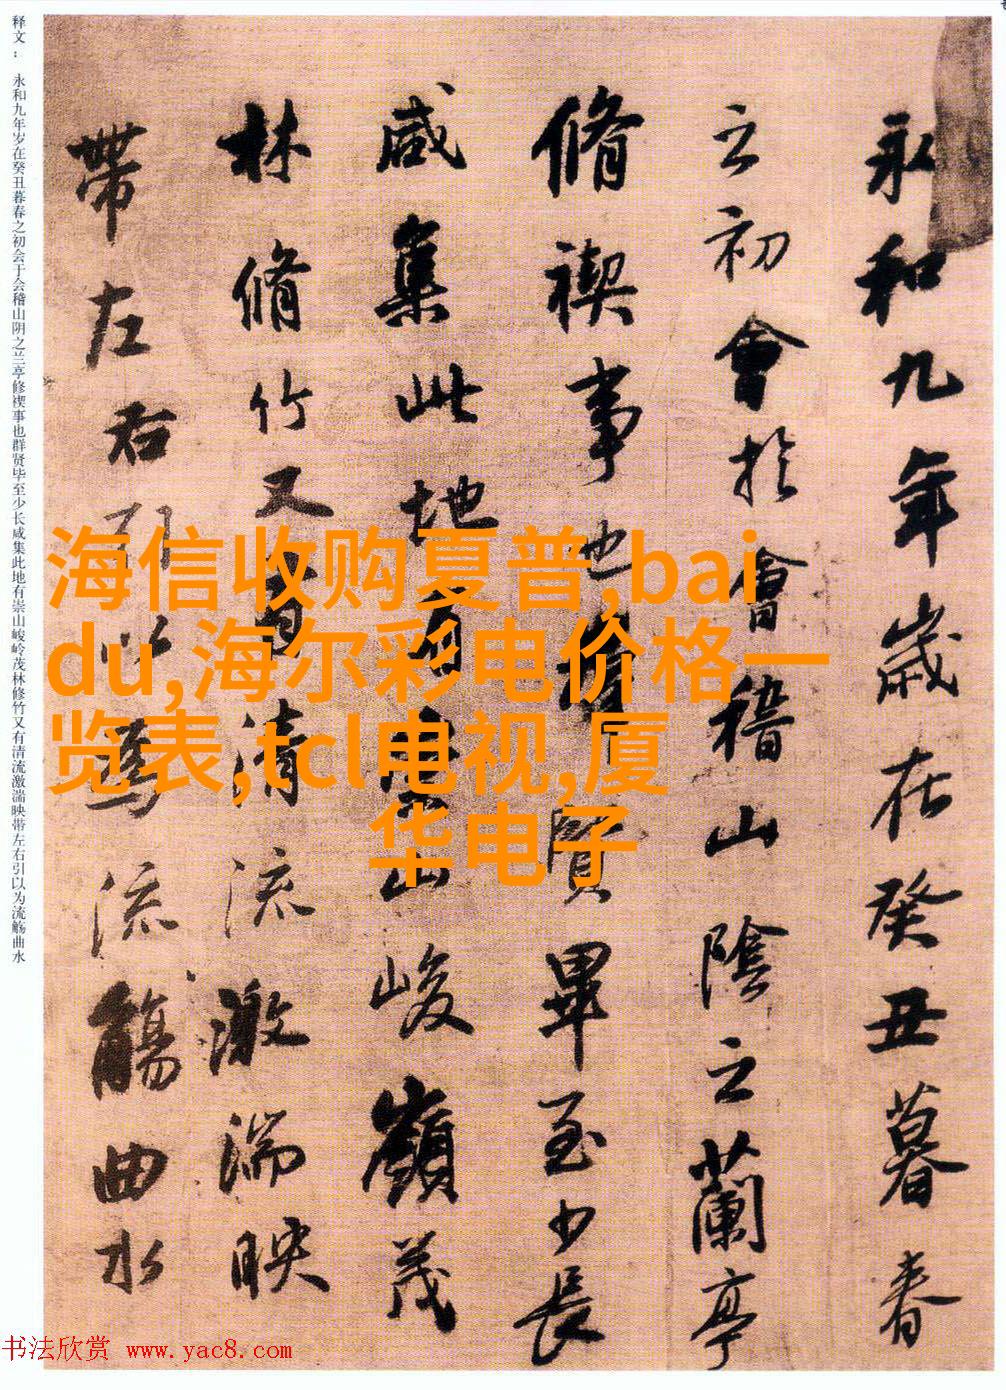 永和九年歲在癸丑暮春
之初會於會稽山陰之蘭亭
脩禊事也羣賢畢至少長
咸集此地有崇山峻嶺茂
林脩竹又有清流激湍映
帶左右引以為流觴曲水
释文：永和九年岁在癸丑暮春之初会于会稽山阴之兰亭修禊事也群贤毕至少长咸集此地有崇山峻岭茂林修竹又有清流激湍映带左右引以为流觞曲水
海信收购夏普,bai
du,海尔彩电价格一
览表,tcl电视,厦
华电子
书法欣赏 www.yac8.com